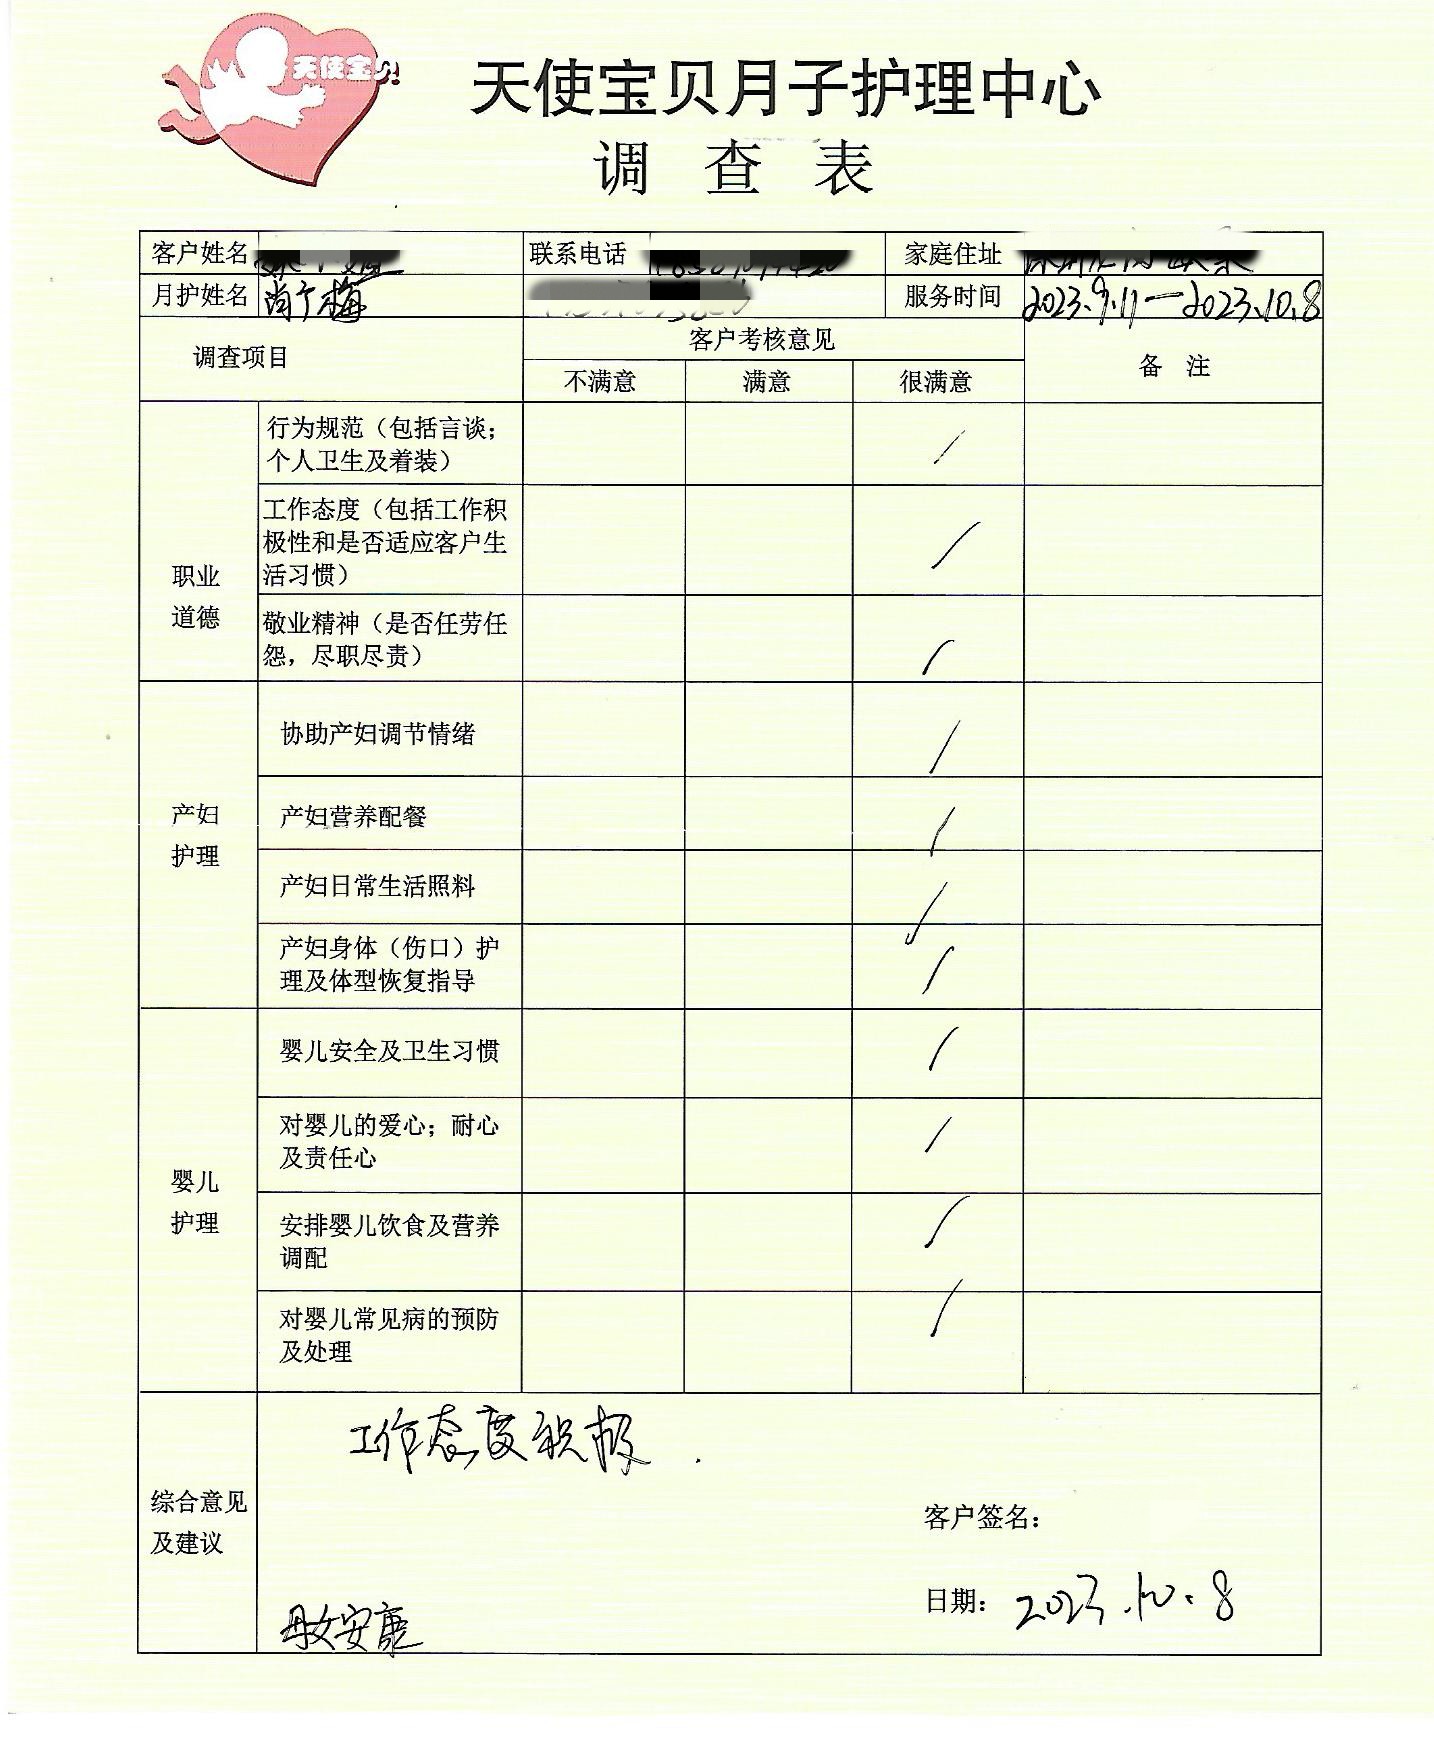 天使宝贝
天使宝贝月子护理中心
调 查 表
客户姓名 联系电话 家庭住址
月护姓名 尚广梅 服务时间 2023.9.11—2023.10.8
调查项目 客户考核意见 备 注
不满意 满意 很满意
职业
道德
行为规范（包括言谈；
个人卫生及着装）
工作态度（包括工作积
极性和是否适应客户生
活习惯）
敬业精神（是否任劳任
怨，尽职尽责）
产妇
护理
协助产妇调节情绪
产妇营养配餐
产妇日常生活照料
产妇身体（伤口）护
理及体型恢复指导
婴儿
护理
婴儿安全及卫生习惯
对婴儿的爱心；耐心
及责任心
安排婴儿饮食及营养
调配
对婴儿常见病的预防
及处理
综合意见
及建议
工作态度积极.
客户签名：
日期：2023.10.8
母女安康